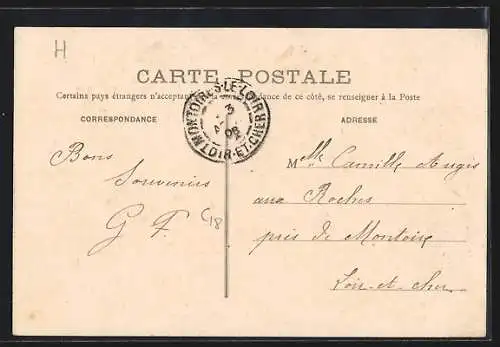 H
CARTE POSTALE
Certains pays étrangers n'acceptant de correspondance de ce côté, se renseigner à la Poste
CORRESPONDANCE
ADRESSE
MONTOIRE-S-LE-LOIR
3
08
LOIR-ET-CHER
Bons
Souvenirs
G F.
C18
Melle Camille Augis
aux Roches
près de Montoire
Loir-et-cher